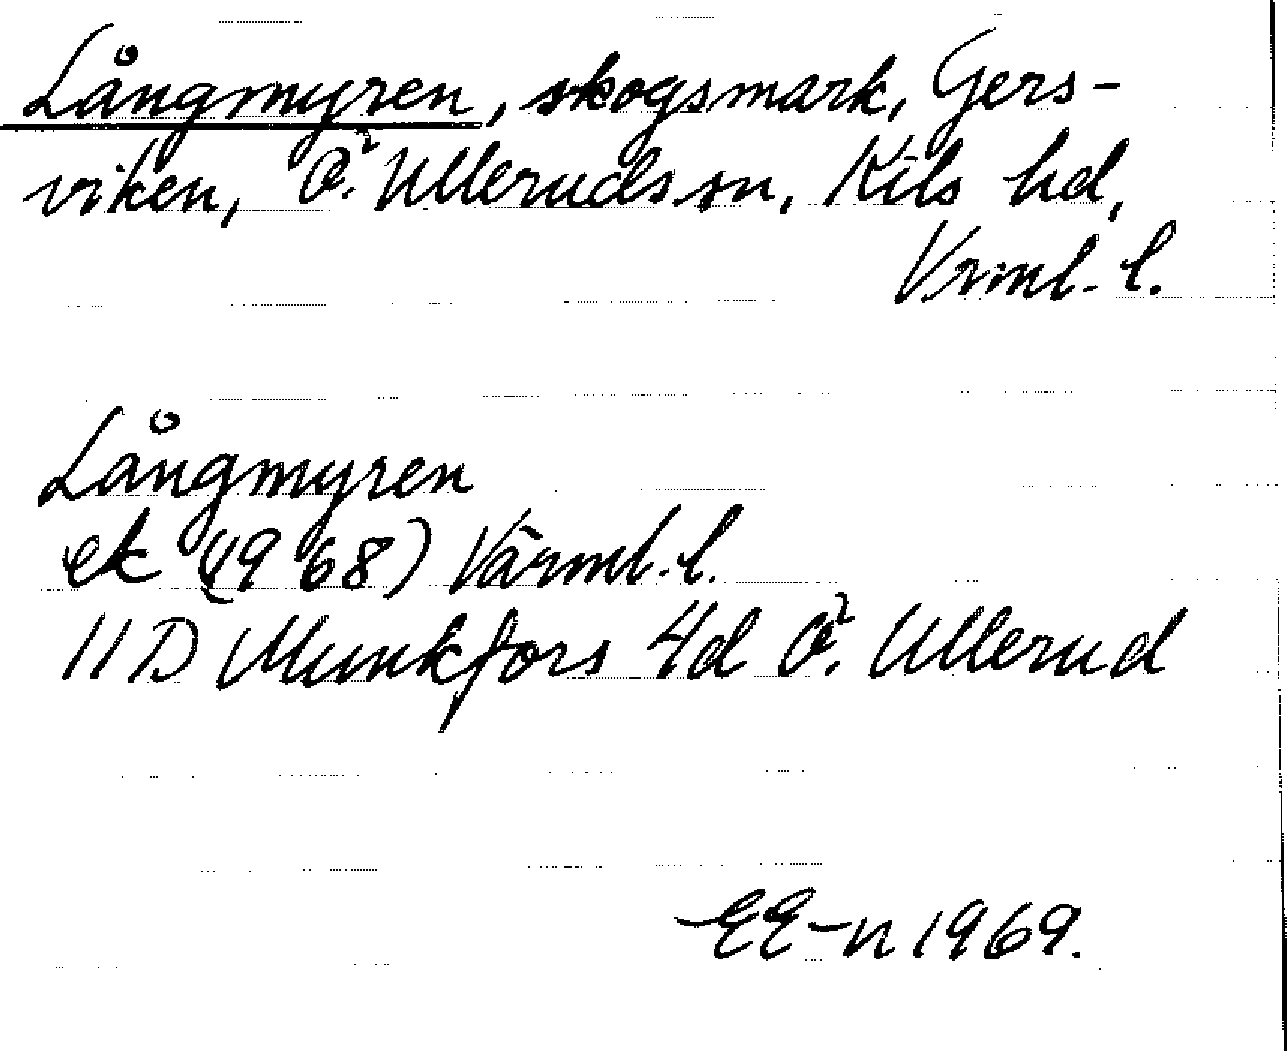 Långmyren, skogsmark, Gers-
viken, Ö. Ullerudssn, Kils hd,
Vrml. l.
Långmyren
ek (1968) Värml. l.
11D Munkfors 4d Ö. Ullerud
EE-n 1969.